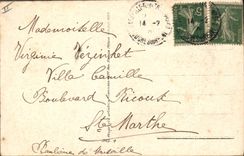 14 -7
Mademoiselle
Virginie Vézinhet
Villa Camille
Boulevard Vicoux
Ste Marthe
Banlieue de Marseille